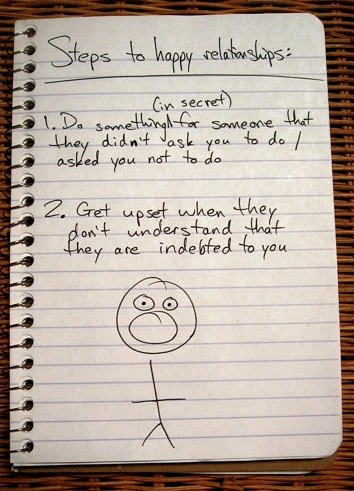 Steps to happy relationships:
(in secret)
1. Do something for someone that
they didn't ask you to do /
asked you not to do
2. Get upset when they
don't understand that
they are indebted to you